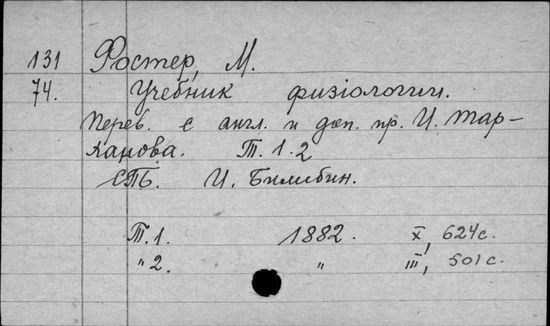 131 Фостер, М.
74. Учебник физіологии.
Перев. с англ. и доп. пр. И. Тар-
ханова. Т. 1. 2
СПБ. И. Билибин.
Т. 1. 1882. X, 624 с.
" 2. " III, 501 с.